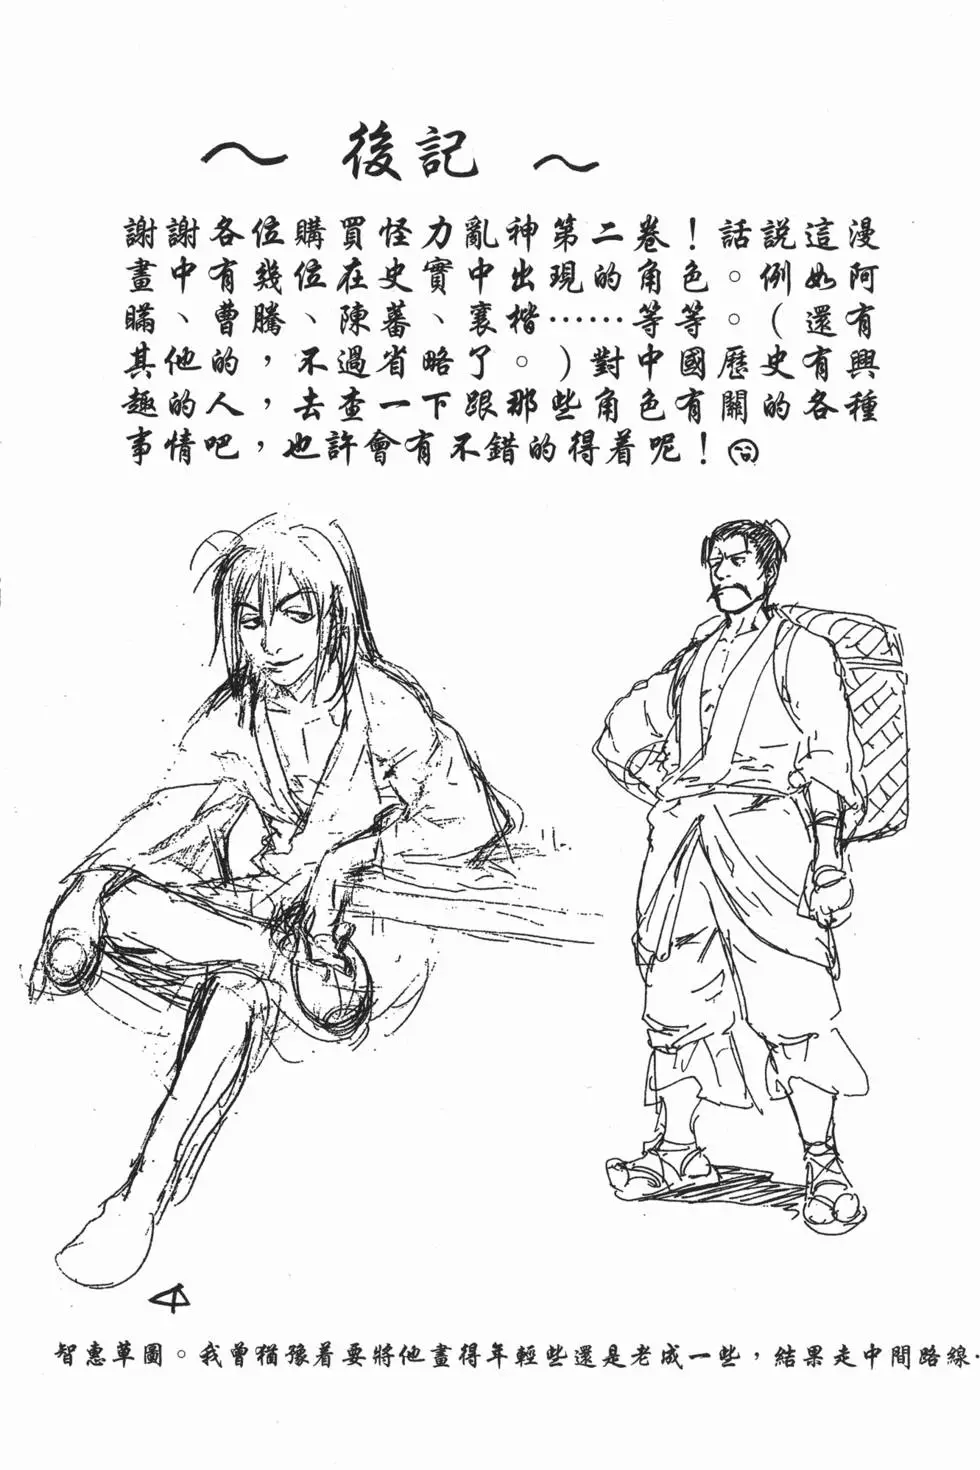 ～ 後記 ～
謝謝各位購買怪力亂神第二卷！話說這漫
畫中有幾位在史實中出現的角色。例如阿
瞞、曹騰、陳蕃、襄楷……等等。（還有
其他的，不過省略了。）對中國歷史有興
趣的人，去查一下跟那些角色有關的各種
事情吧，也許會有不錯的得着呢！
智惠草圖。我曾猶豫着要將他畫得年輕些還是老成一些，結果走中間路線…